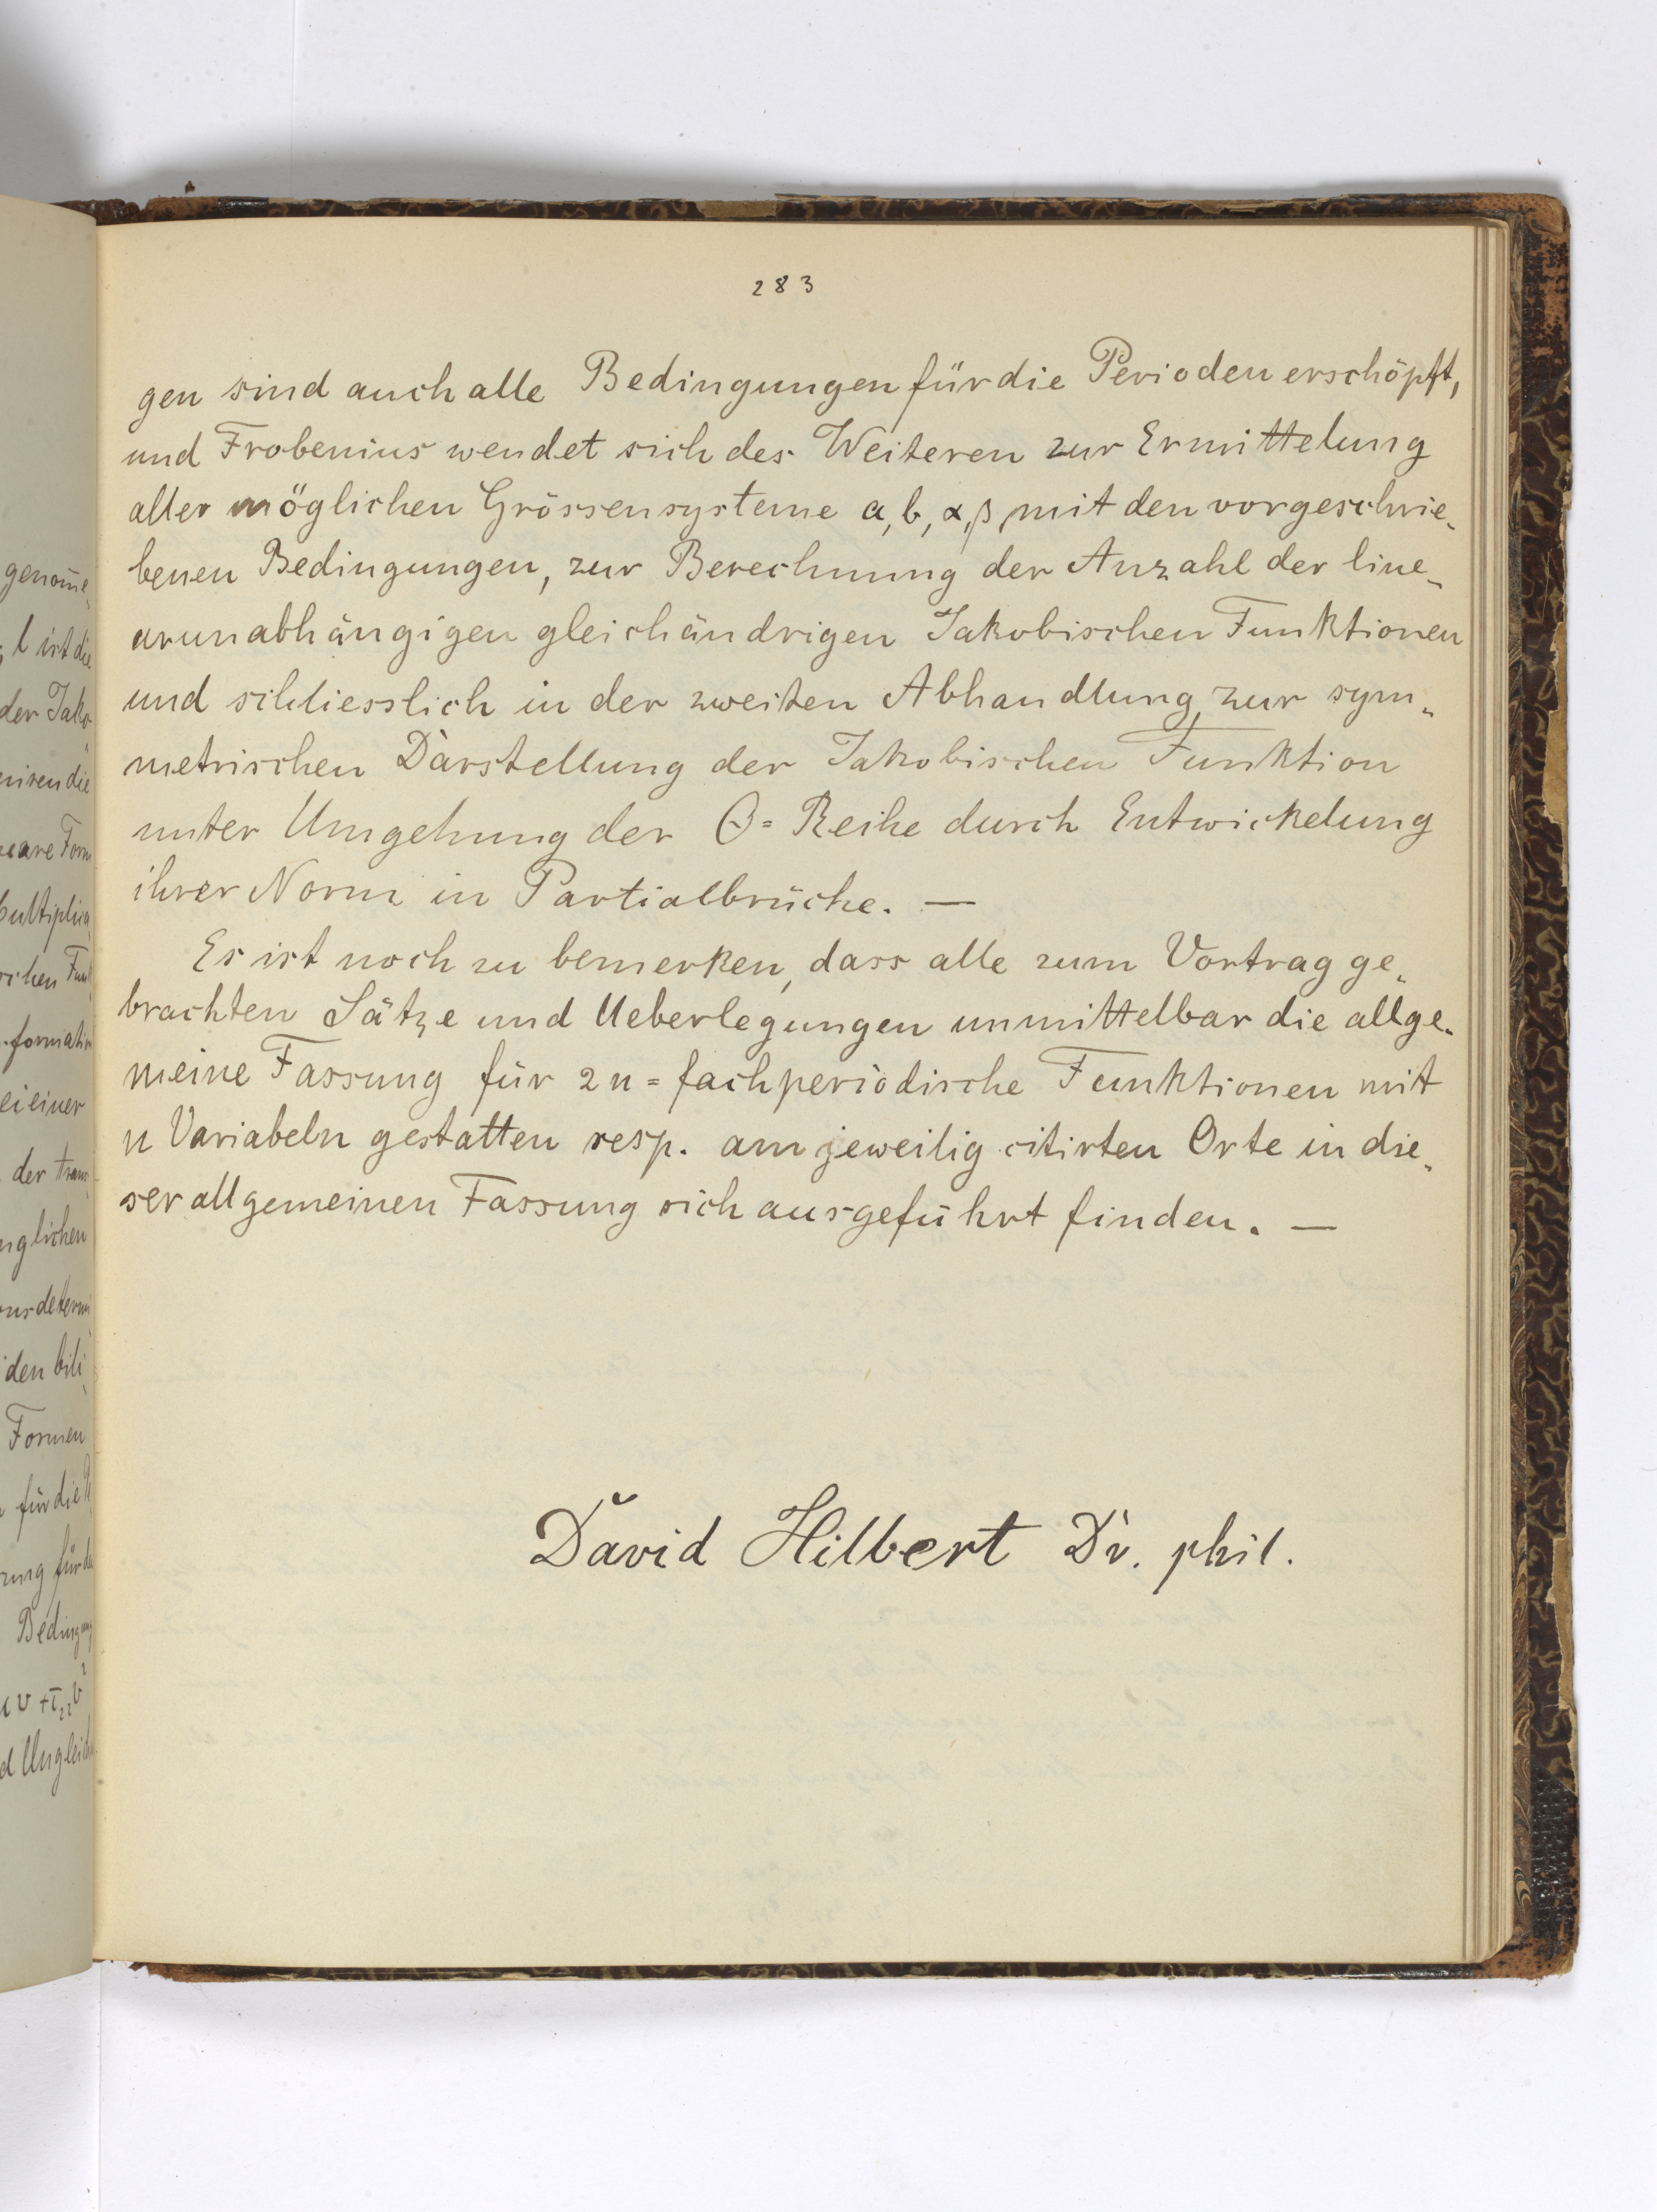 283
gen sind auch alle Bedingungen für die Perioden erschöpft,
und Frobenius wendet sich des Weiteren zur Ermittelung
aller möglichen Grössensysteme a, b, α, β, mit den vorgeschrie-
benen Bedingungen, zur Berechnung der Anzahl der line-
arunabhängigen gleichändrigen Jakobischen Funktionen
und schliesslich in der zweiten Abhandlung zur sym-
metrischen Darstellung der Jakobischen Funktion
unter Umgehung der Θ=Reihe durch Entwickelung
ihrer Norm in Partialbrüche. —
Es ist noch zu bemerken, dass alle zum Vortrag ge-
brachten Sätze und Ueberlegungen unmittelbar die allge-
meine Fassung für 2n=fachperiodische Funktionen mit
n Variabeln gestatten resp. am jeweilig citirten Orte in die-
ser allgemeinen Fassung sich ausgeführt finden. —
David Hilbert Dr. phil.
genom̅e-
l ist die
der Jako-
niren die
eare Form
Multiplica-
schen Fun
formation
ei einer
der trans-
nglichen
nsdetermi
den bili-
Formen
für die
rung für
Bedingung
uv + τ₂₂v²
d Ungleich